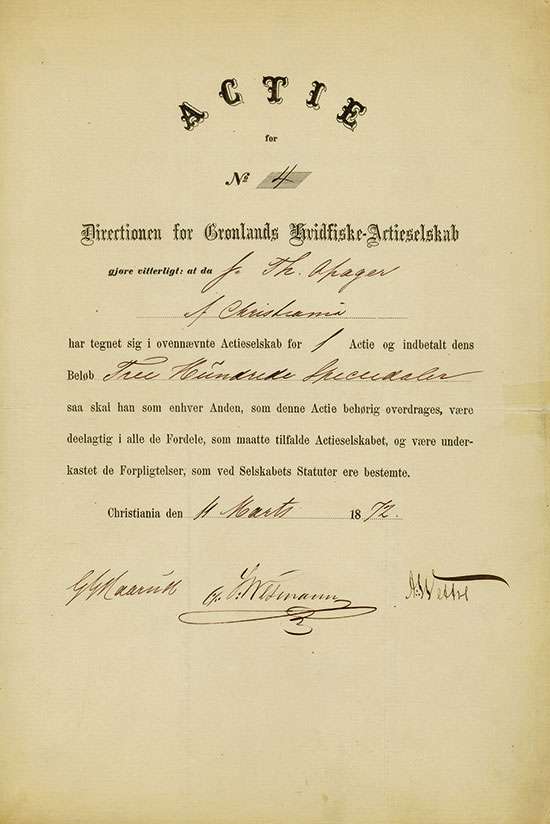 ACTIE
for
No 4
Directionen for Grønlands Hvidfiske-Actieselskab
gjøre vitterligt: at da Th.
Af Christiania
har tegnet sig i ovennævnte Actieselskab for 1 Actie og indbetalt dens
Beløb Tree Hundrede Speciedaler
saa skal han som enhver Anden, som denne Actie behørig overdrages, være
deelagtig i alle de Fordele, som maatte tilfalde Actieselskabet, og være under-
kastet de Forpligtelser, som ved Selskabets Statuter ere bestemte.
Christiania den 11 Marts 1872.